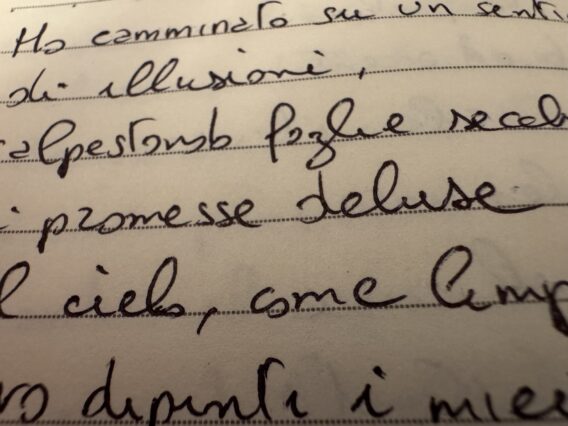 Ho camminato su un senti
di illusioni,
alpestando foglie secch
i promesse deluse
l cielo, come
ro dipinti i miei